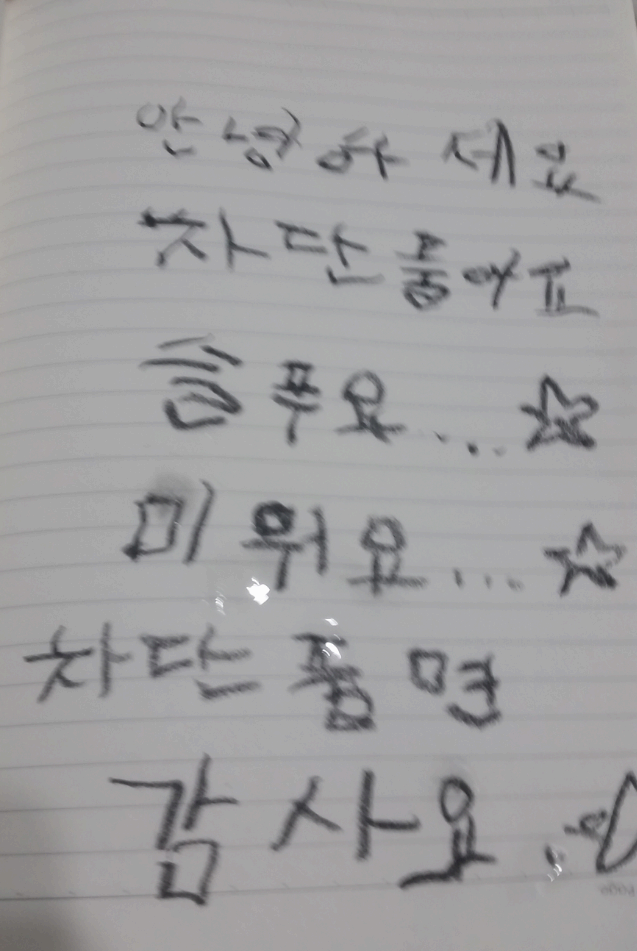 안녕하세요
차단풀어요
슬푸요...☆
미워요...☆
차단풀면
감사요..